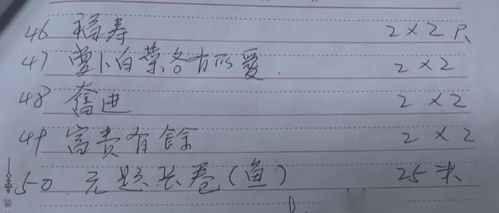 46 福寿 2×2尺
47 萝卜白菜各有所爱. 2×2
48 奋进 2×2
49 富贵有余 2×2
50. 无题长卷(鱼) 25米
装